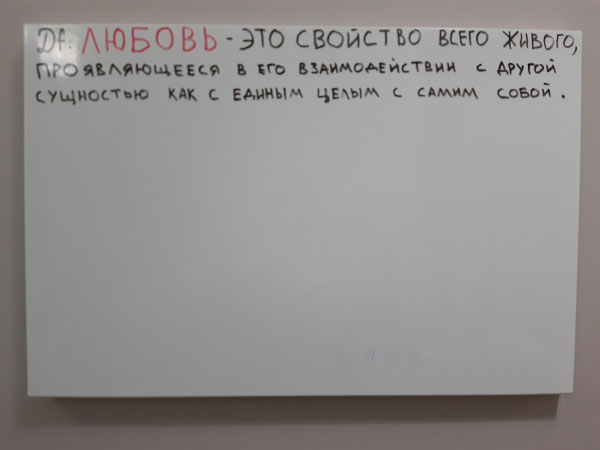 Df: ЛЮБОВЬ - ЭТО СВОЙСТВО ВСЕГО ЖИВОГО,
ПРОЯВЛЯЮЩЕЕСЯ В ЕГО ВЗАИМОДЕЙСТВИИ С ДРУГОЙ
СУЩНОСТЬЮ КАК С ЕДИНЫМ ЦЕЛЫМ С САМИМ СОБОЙ.